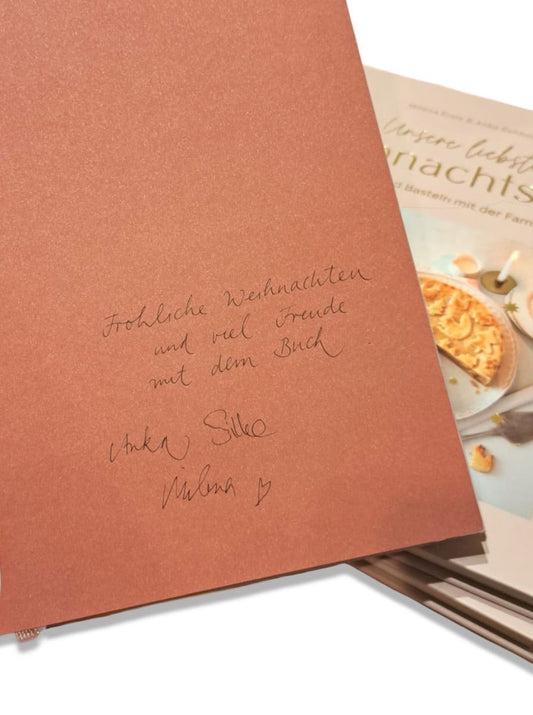 Fröhliche Weihnachten
und viel Freude
mit dem Buch
Anka Silke
Milena
Unsere liebst
nachts
d Basteln mit der Fam